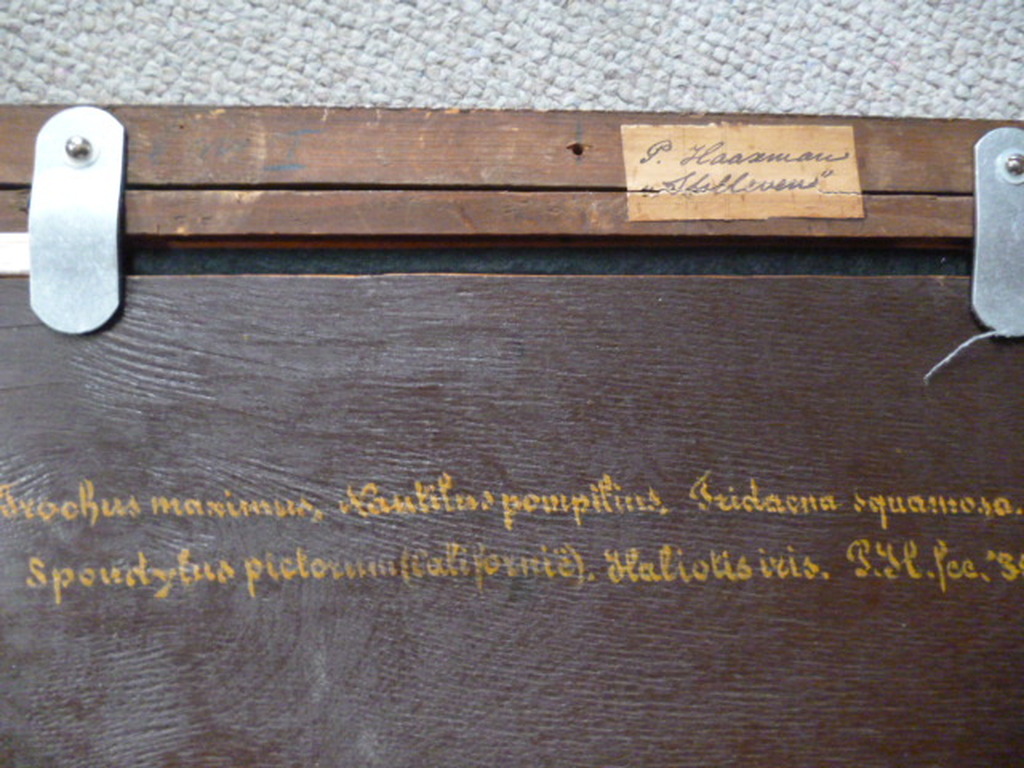 P. Haaxman
"Stilleven"
Trochus maximus, Nautilus pompilius, Tridacna squamosa.
Spondylus pictorum (Californië). Haliotis iris. P.H. fec. '